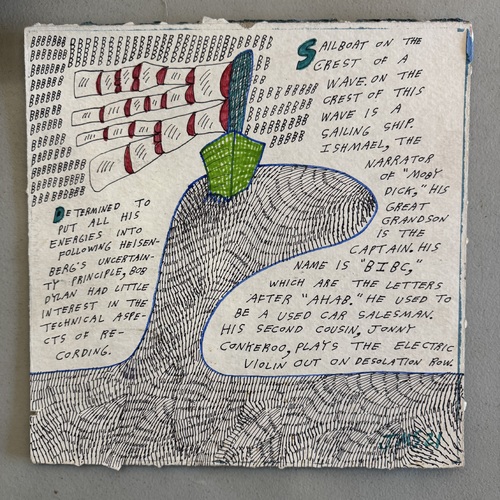 SAILBOAT ON THE
CREST OF A
WAVE. ON THE
CREST OF THIS
WAVE IS A
SAILING SHIP.
ISHMAEL, THE
NARRATOR
OF "MOBY
DICK," HIS
GREAT
GRANDSON
IS THE
CAPTAIN. HIS
NAME IS "BIBC,"
WHICH ARE THE LETTERS
AFTER "AHAB." HE USED TO
BE A USED CAR SALESMAN.
HIS SECOND COUSIN, JONNY
CONKEROO, PLAYS THE ELECTRIC
VIOLIN OUT ON DESOLATION ROW.
DETERMINED TO
PUT ALL HIS
ENERGIES INTO
FOLLOWING HEISEN-
BERG'S UNCERTAIN-
TY PRINCIPLE, BOB
DYLAN HAD LITTLE
INTEREST IN THE
TECHNICAL ASPE-
CTS OF RE-
CORDING.